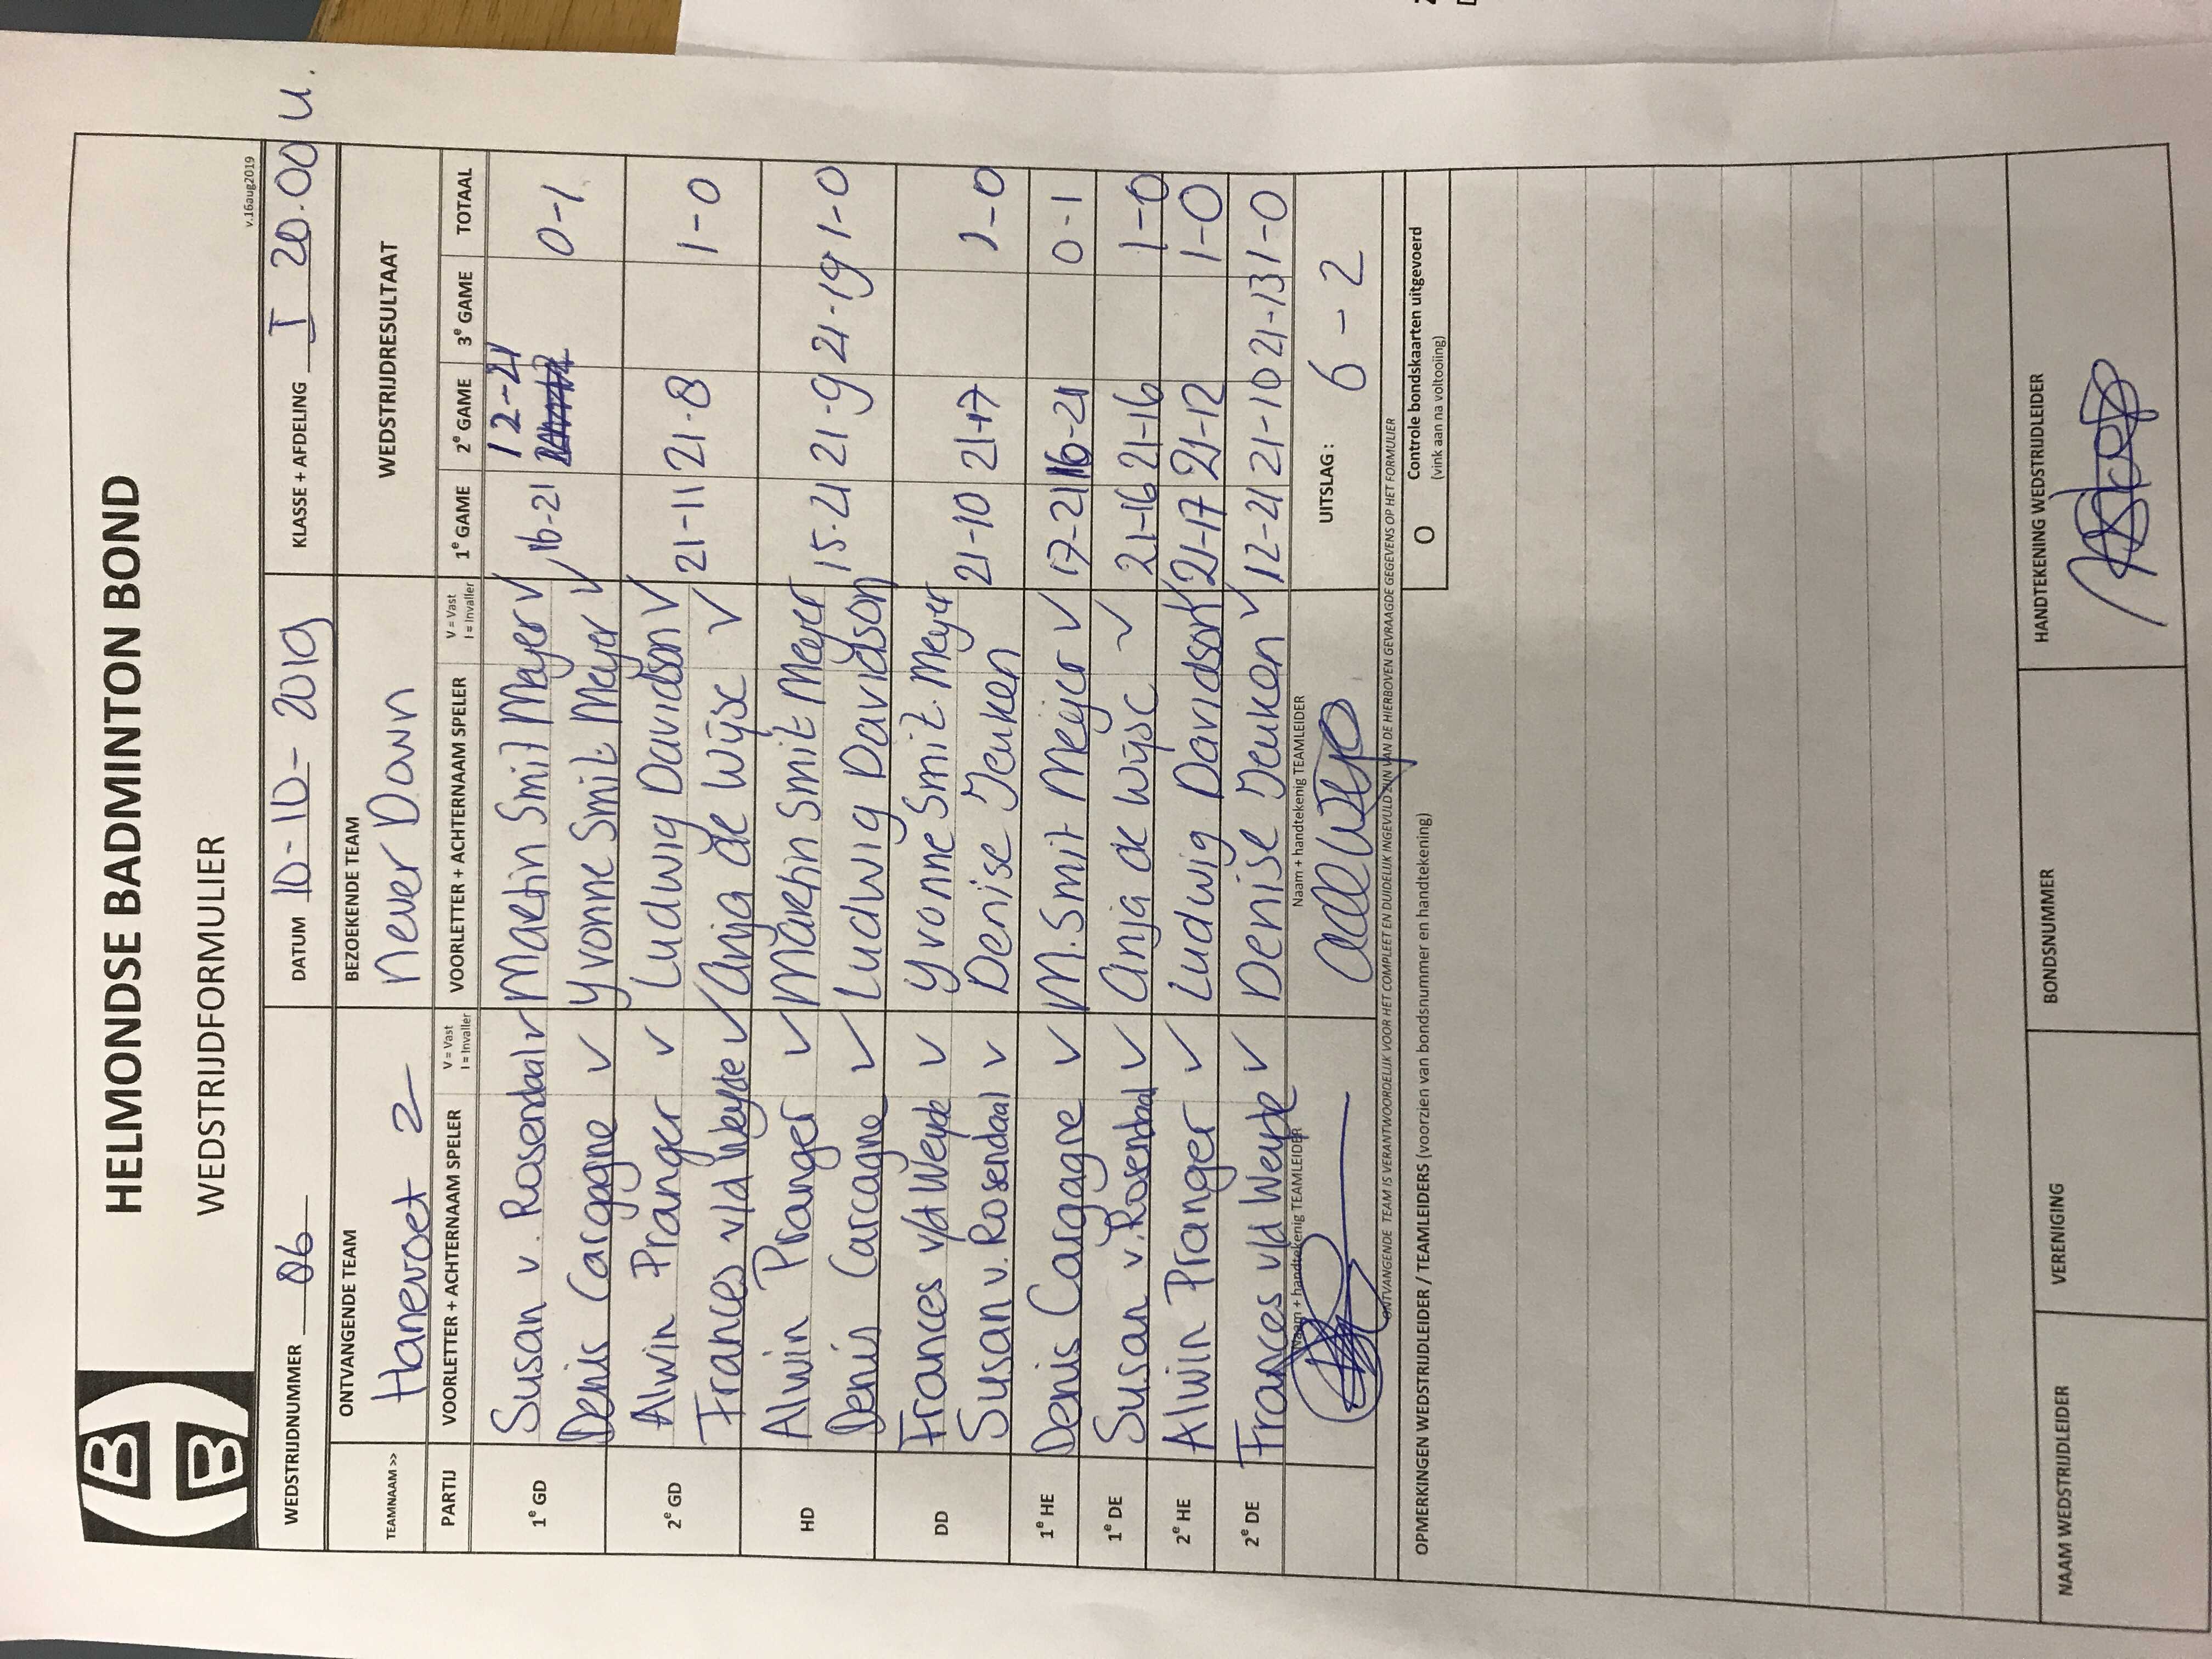 HELMONDSE BADMINTON BOND
WEDSTRIJDFORMULIER
v.16aug2019
WEDSTRIJDNUMMER 06 DATUM 10-10-2019 KLASSE + AFDELING I 20.00 u.
TEAMNAAM >> ONTVANGENDE TEAM BEZOEKENDE TEAM WEDSTRIJDRESULTAAT
Hanevoet 2 Never Down
PARTIJ VOORLETTER + ACHTERNAAM SPELER V = Vast I = Invaller VOORLETTER + ACHTERNAAM SPELER V = Vast I = Invaller 1e GAME 2e GAME 3e GAME TOTAAL
1e GD Susan v. Rosendaal v Martin Smit Meyer v 16-21 12-21 0-1
Denis Cargagne v Yvonne Smit Meyer v
2e GD Alwin Pranger v Ludwig Davidson v 21-11 21-8 1-0
Frances v/d Weyde v Anja de Wijse v
HD Alwin Pranger v Martin Smit Meyer 15-21 21-9 21-19 1-0
Denis Carcagne v Ludwig Davidson
DD Frances v/d Weyde v Yvonne Smit Meyer 21-10 21-17 1-0
Susan v. Rosendaal v Denise Jeuken
1e HE Denis Cargagne v M. Smit Meijer v 17-21 16-21 0-1
1e DE Susan v. Rosendaal v Anja de Wijse v 21-16 21-16 1-0
2e HE Alwin Pranger v Ludwig Davidson v 21-17 21-12 1-0
2e DE Frances v/d Weyde v Denise Jeuken v 12-21 21-10 21-13 1-0
Naam + handtekenig TEAMLEIDER Naam + handtekenig TEAMLEIDER UITSLAG : 6 - 2
ONTVANGENDE TEAM IS VERANTWOORDELIJK VOOR HET COMPLEET EN DUIDELIJK INGEVULD ZIJN VAN DE HIERBOVEN GEVRAAGDE GEGEVENS OP HET FORMULIER
OPMERKINGEN WEDSTRIJDLEIDER / TEAMLEIDERS (voorzien van bondsnummer en handtekening)
O Controle bondskaarten uitgevoerd
(vink aan na voltooiing)
NAAM WEDSTRIJDLEIDER VERENIGING BONDSNUMMER HANDTEKENING WEDSTRIJDLEIDER